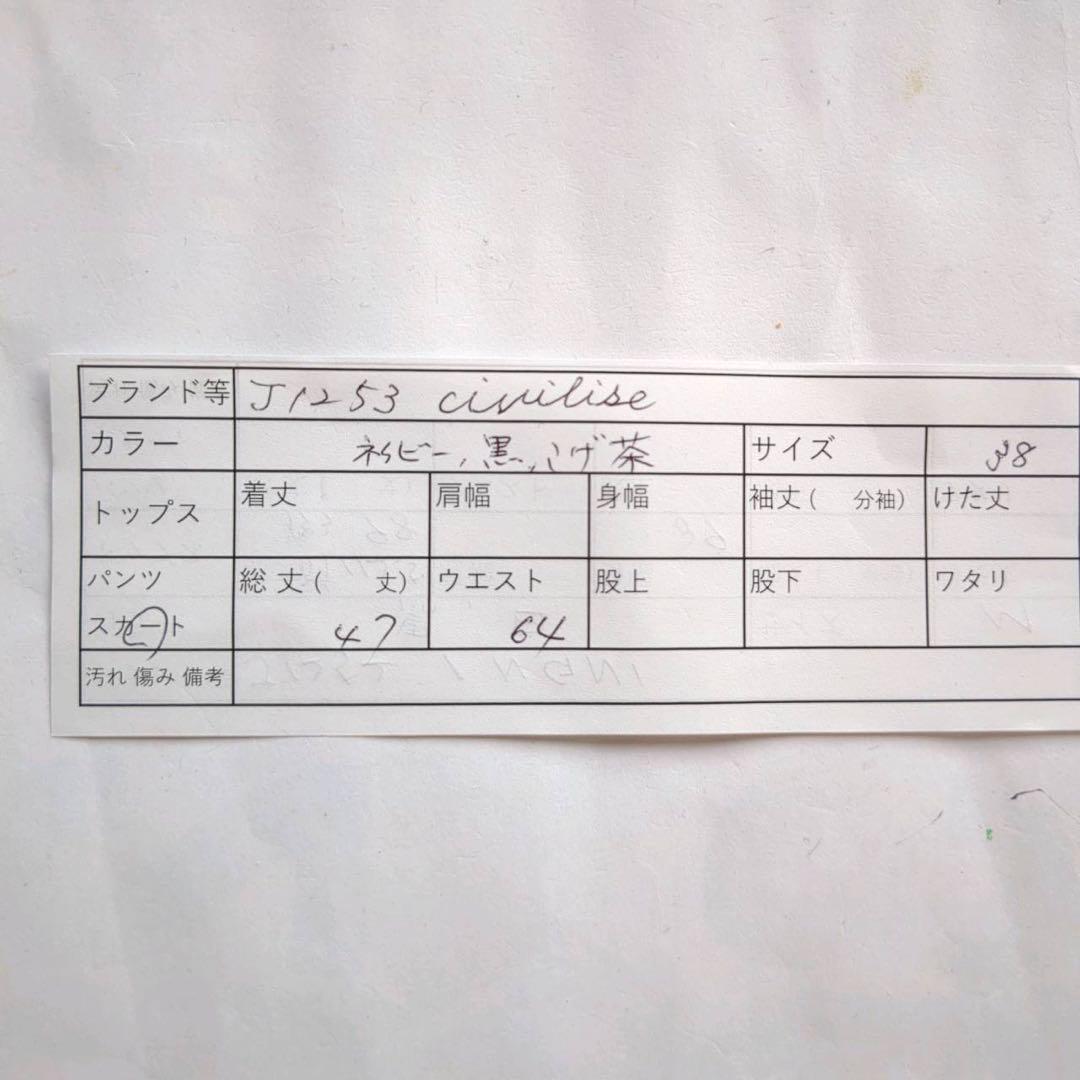 ブランド等 J1253 civilise
カラー ネイビー、黒、こげ茶 サイズ 38
トップス 着丈 肩幅 身幅 袖丈( 分袖) けた丈
パンツ 総丈( 丈) ウエスト 股上 股下 ワタリ
スカート 47 64
汚れ 傷み 備考